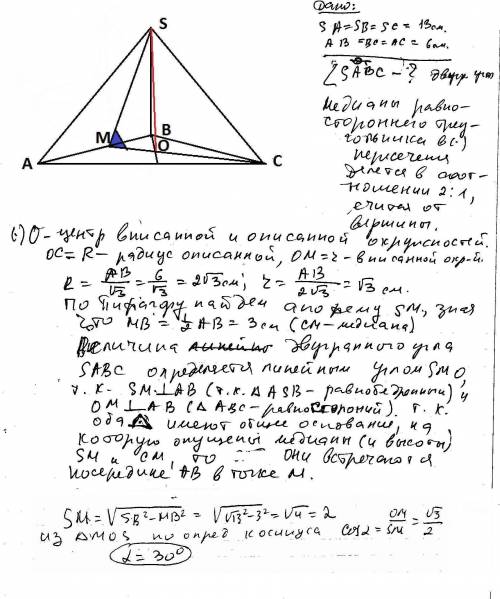 Дано:
SA=SB=SC = 13см.
AB=BC=AC = 6см.
∠SABC - ? двугр угол
S
M
B
O
A
C
Медианы равно-
стороннего треу-
гольника в (.)
пересечения
делется в соот-
ношении 2:1,
считая от
вершины.
(.) O-центр вписанной и описанной окружностей.
OC=R- радиус описанной, OM=r-вписанной окр-й.
R = AB/√3 = 6/√3 = 2√3 см; r = AB/2√3 = √3 см.
По Пифагору найдем апофему SM, зная
что MB = 1/2 AB = 3 см (CM-медиана)
Величина двугранного угла
SABC определяется линейным углом SMO,
т.к. SM⊥AB (т.к. △ASB-равнобедренный) и
OM⊥AB (△ABC-равностороний). т.к.
оба △ имеют общее основание, на
которую опущены медианы (и высоты)
SM и CM, то они встречаются
посередине AB в точке M.
SM = √SB²-MB² = √√13²-3² = √4 = 2
из △MOS по опред косинуса cosα = OM/SM = √3/2
α = 30°